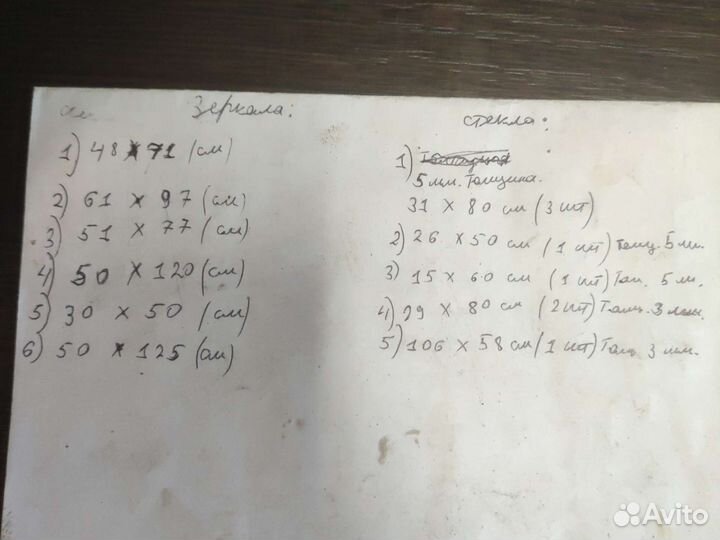 Зеркала:
1) 48 х 71 (см)
2) 61 х 97 (см)
3) 51 х 77 (см)
4) 50 х 120 (см)
5) 30 х 50 (см)
6) 50 х 125 (см)
стекла:
1)
5 мм. Толщина.
31 х 80 см (3 шт)
2) 26 х 50 см (1 шт) Толщ. 5 м.
3) 15 х 60 см (1 шт) Тол. 5 м.
4) 29 х 80 см (2 шт) Толщ. 3 мм.
5) 106 х 58 см (1 шт) Тол. 3 мм.
Avito